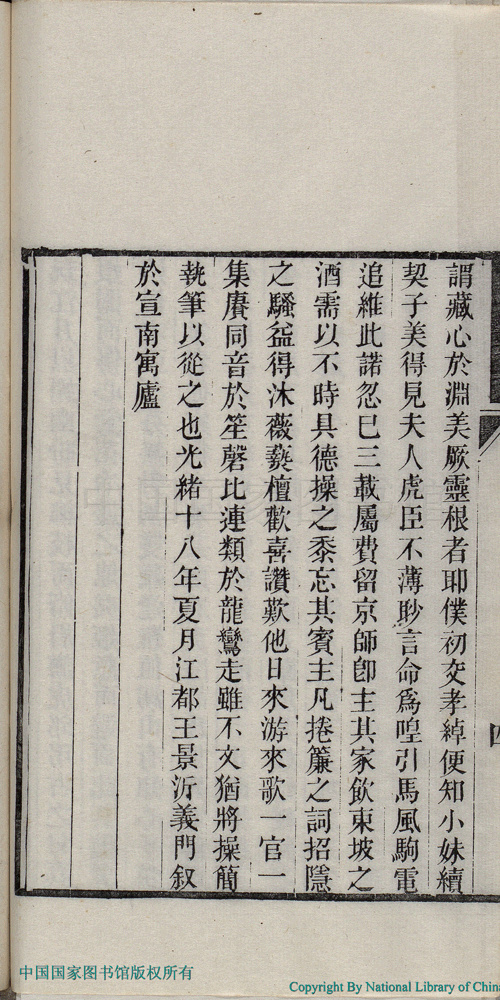 謂藏心於淵美厥靈根者耶僕初交孝綽便知小妹續
契子美得見夫人虎臣不薄眇言命爲喤引馬風駒電
追維此諾忽已三載屬費留京師卽主其家飲東坡之
酒需以不時具德操之黍忘其賓主凡捲簾之詞招隱
之騷益得沐薇爇檀歡喜讚歎他日來游來歌一官一
集賡同音於笙磬比連類於龍鸞走雖不文猶將操簡
執筆以從之也光緒十八年夏月江都王景沂義門叙
於宣南寓廬
四
中国国家图书馆版权所有
Copyright By National Library of Chin